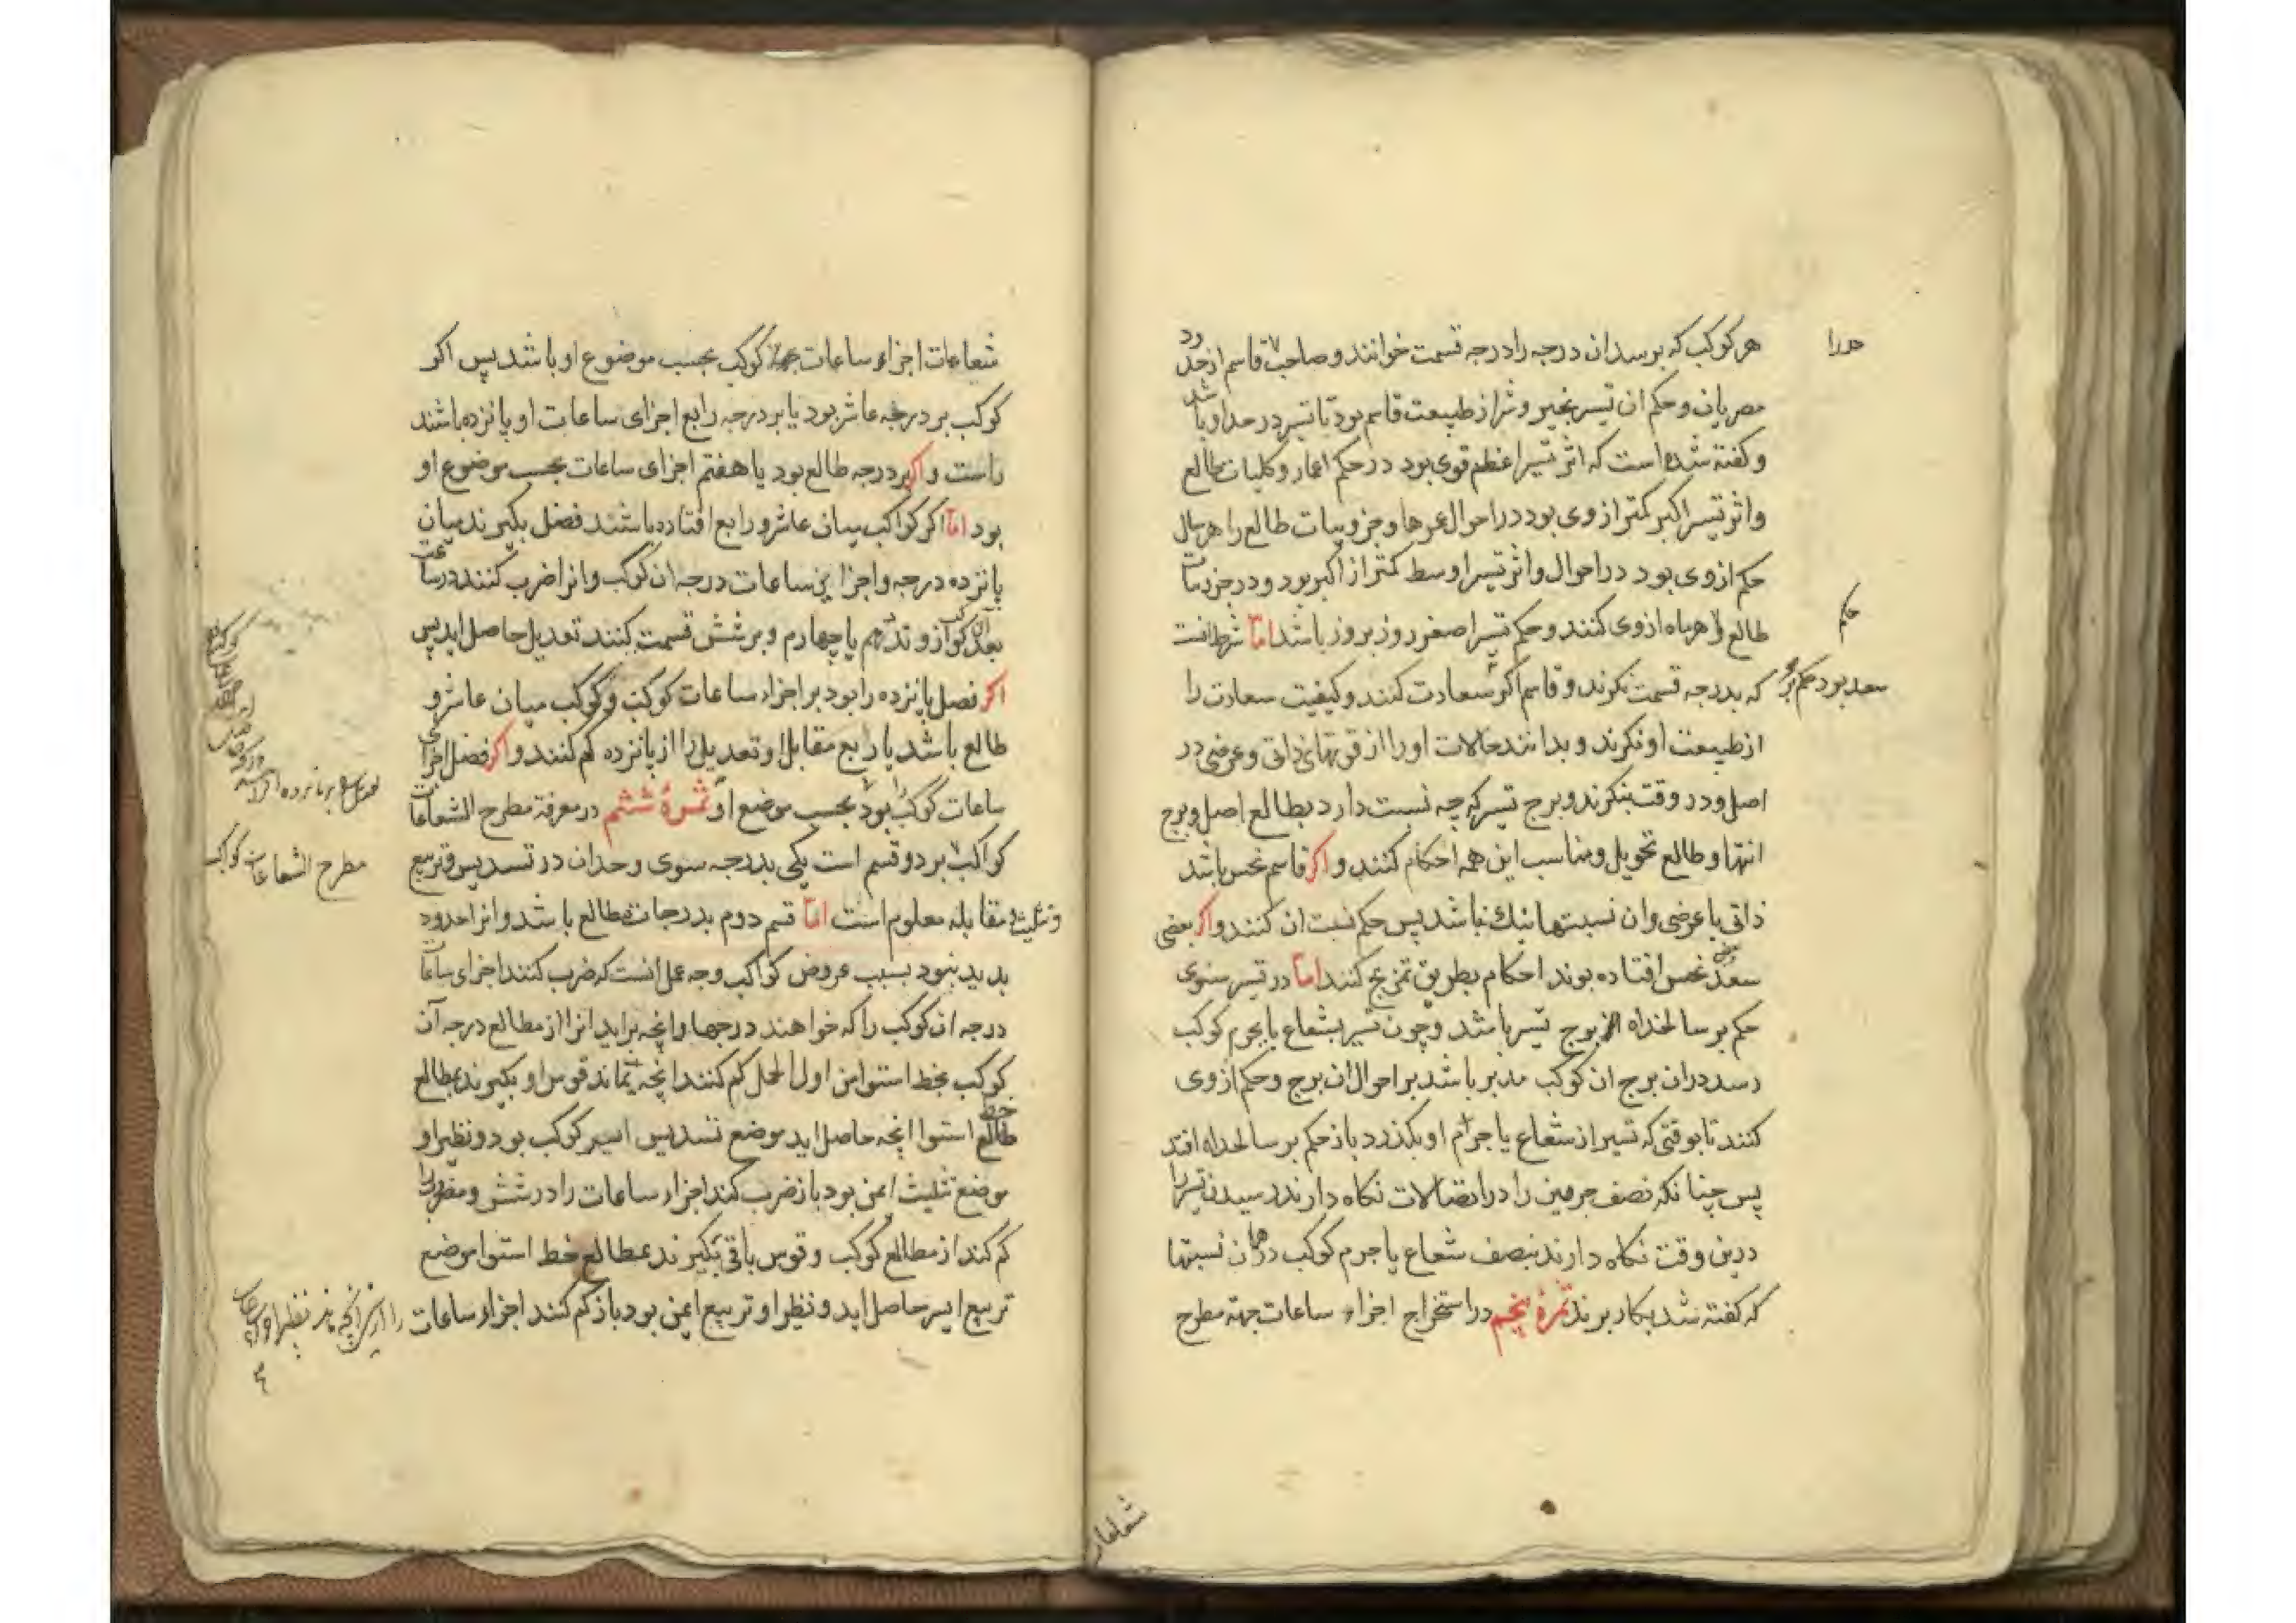 هر کوکب که بر سد ان درجه را درجه قسمت خوانند و صاحب قاسم از حدود
مصریان و حکم ان تسیر بخیر و شر از طبیعت قاسم بود تا تسیر در حد او باشد
و کفته شده است که اثر تسیر اعظم قوی بود در حکم اعمار و کلیات طالع
و اثر تسیر اکبر کمتر از وی بود در احوال عمرها و جزویات طالع را هر سال
حکم از وی بود در احوال و اثر تسیر اوسط کمتر از اکبر بود و در جزویات
طالع را هر ماه از وی کنند و حکم تسیر اصغر روز بروز باشد اما شرط انست
که بدرجه قسمت نکرند و قاسم اکر سعد بود حکم بر سعادت کنند و کیفیت سعادت را
از طبیعت او نکرند و بدانند حالات او را از قوتهای ذاتی و عرضی در
اصل و در وقت بنکرند و برج تسیر که چه نسبت دارد بطالع اصل و برج
انتها و طالع تحویل و مناسب این همه احکام کنند و اکر قاسم نحس باشد
ذاتی یا عرضی و ان نسبتها نیك نباشد پس حکم نسبت ان کنند و اکر بعضی
سعد و بعضی نحس افتاده بوند احکام بطریق تمزیج کنند اما در تسیر سنوی
حکم بر سالخداه برج تسیر باشد و چون تسیر بشعاع یا بجرم کوکب
رسد در ان برج ان کوکب مدبر باشد بر احوال ان برج و حکم از وی
کنند تا بوقتی که تسیر از شعاع یا جرم او بکذرد باز حکم بر سالخداه افتد
پس چنانکه نصف جرمین را در اتصالات نکاه دارند رسیدن تسیر را
درین وقت نکاه دارند بنصف شعاع یا جرم کوکب در همان نسبتها
که کفته شد بکار برند ثمرهٔ پنجم در استخراج اجزاء ساعات جهة مطرح
حکم
شعاعات
شعاعات اجزاء ساعات کوکب بحسب موضوع او باشد پس اکر
کوکب بر درجه عاشر بود یا بر درجه رابع اجزای ساعات او پانزده باشند
راست و اکر بر درجه طالع بود یا هفتم اجزای ساعات بحسب موضوع او
بود اما اکر کواکب میان عاشر و رابع افتاده باشند فضل بکیرند میان
پانزده درجه و اجزا این ساعات درجه ان کوکب و انرا ضرب کنند در ساعت
بعد ان کوکب از وتد دهم یا چهارم و بر شش قسمت کنند تعدیل حاصل اید پس
اکر فصل پانزده را بود بر اجزاء ساعات کوکب و کوکب میان عاشر و
طالع باشد یا رابع مقابل او تعدیل را از پانزده کم کنند و اکر فضل اجزای
ساعات کوکب را بود بحسب موضع او ثمرهٔ ششم در معرفة مطرح الشعاعات
کواکب بر دو قسم است یکی بدرجه سوی و حدان در تسدیس و تربیع
و تثلیث و مقابله معلوم است اما قسم دوم بدرجات مطالع باشد و انرا حدود
بدید نبود بسبب عروض کواکب وجه عمل انست که ضرب کنند اجزای ساعات
درجه ان کوکب را که خواهند در چهار و انچه براید انرا از مطالع درجه آن
کوکب بخط استوا من اول الحمل کم کنند انچه بماند قوس او بکیرند بمطالع
خط استوا انچه حاصل اید موضع تسدیس ایسر کوکب بود و نظیر او
موضع تثلیث ایمن بود باز ضرب کند اجزاء ساعات را در شش و مضروب را
کم کند از مطالع کوکب و قوس باقی بکیرند بمطالع خط استوا موضع
تربیع ایسر حاصل اید و نظیر او تربیع ایمن بود باز کم کنند اجزاء ساعات
مطرح الشعاعات کواکب